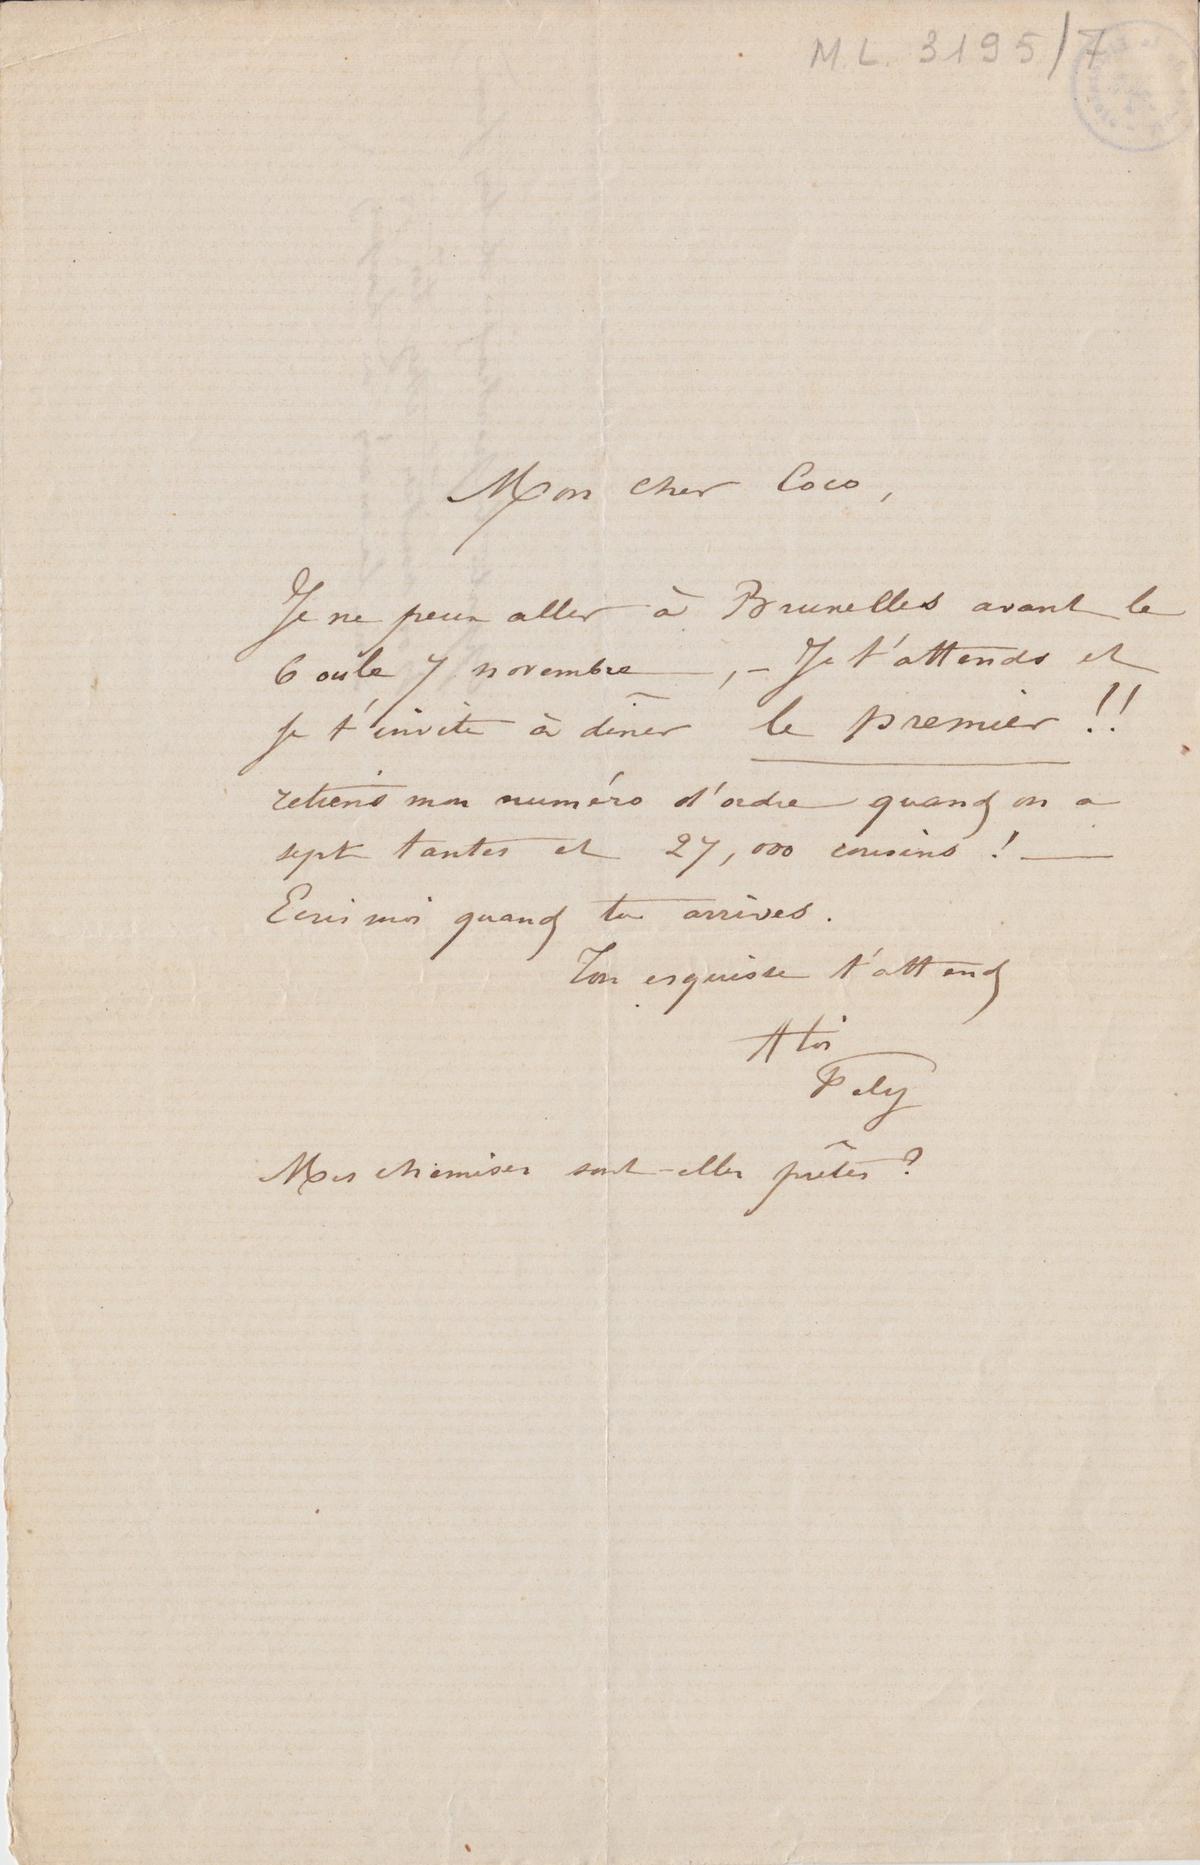 M.L. 3195/7
Mon cher Coco,
Je ne peux aller à Bruxelles avant le
6 ou le 7 novembre, – Je t'attends et
je t'invite à dîner le premier !!
retiens mon numéro d'ordre quand on a
sept tantes et 27,000 cousins ! —
Ecris moi quand tu arrives.
Ton esquisse t'attend
A toi
Fély
Mes chemises sont-elles prêtes ?